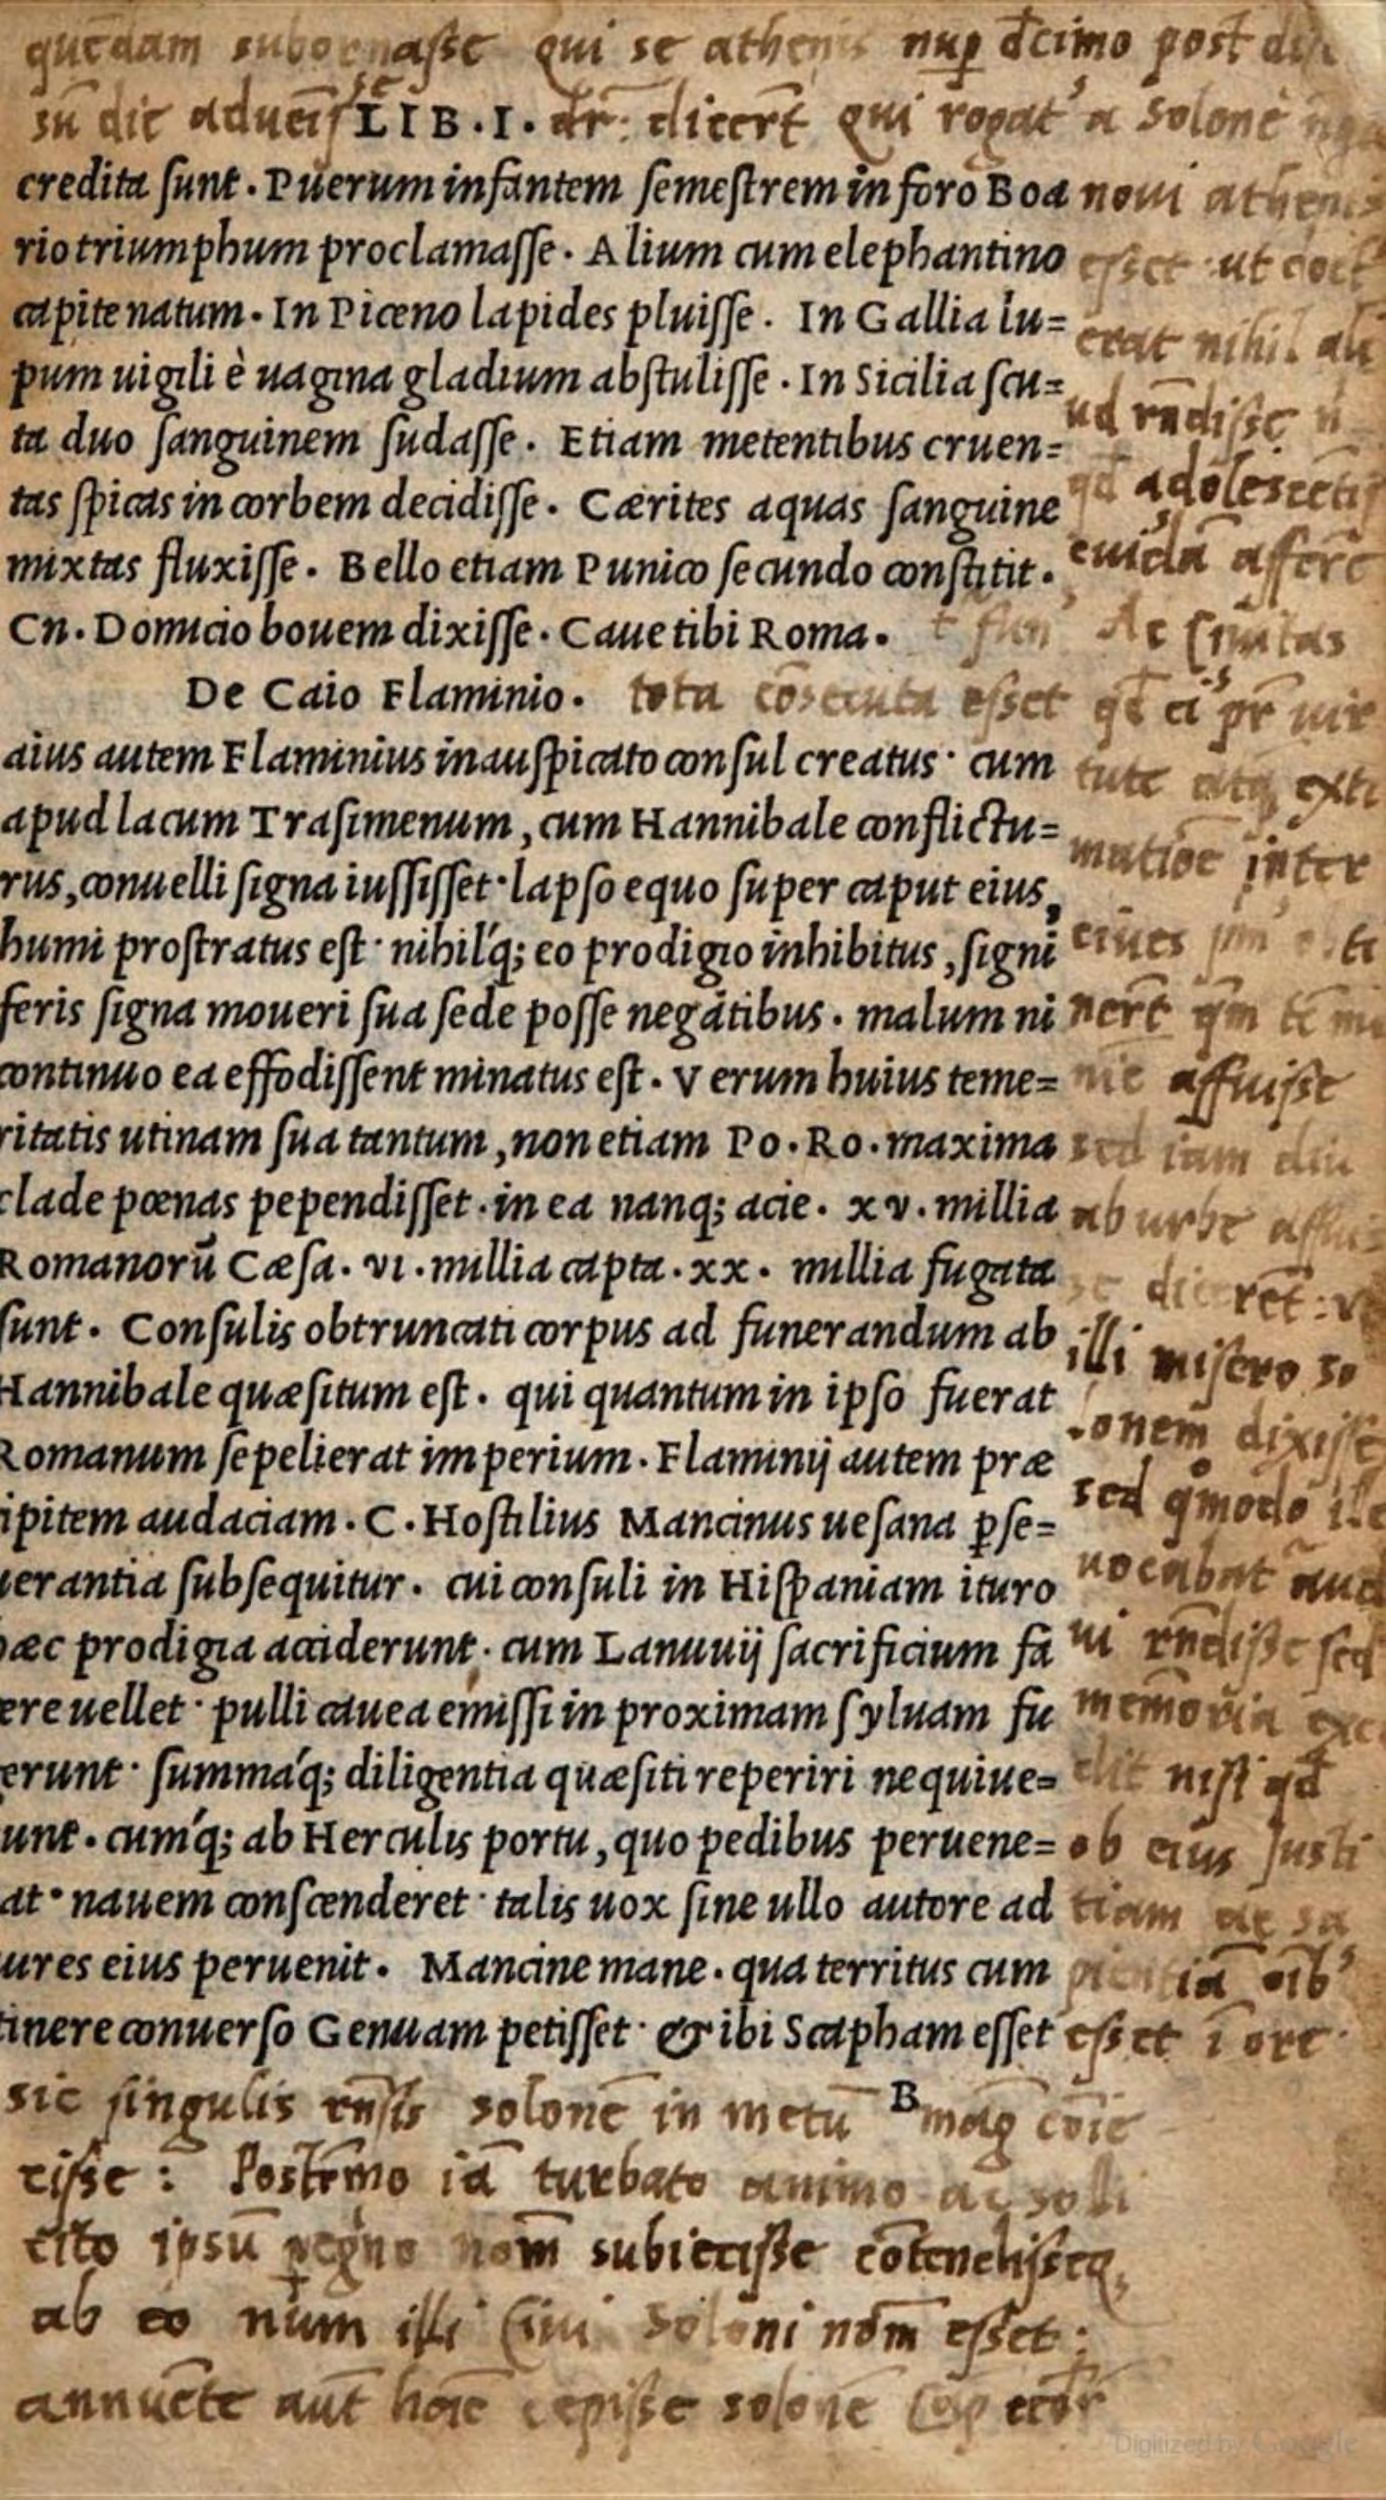 quēdam subornasse qui se athenis nup dcimo post
LIB.I. dr: dicert qui rogat' a Solone
credita sunt. Puerum infantem semestrem in foro Boa
rio triumphum proclamasse. Alium cum elephantino
capite natum. In Piceno lapides pluisse. In Gallia lu=
pum uigili è uagina gladium abstulisse. In Sicilia scu=
ta duo sanguinem sudasse. Etiam metentibus cruen=
tas spicas in corbem decidisse. Cærites aquas sanguine
mixtas fluxisse. Bello etiam Punico secundo constitit.
Cn. Domicio bouem dixisse. Caue tibi Roma.
De Caio Flaminio. tota esset
aius autem Flaminius inauspicato consul creatus· cum
apud lacum Trasimenum, cum Hannibale conflictu=
rus, conuelli signa iussisset· lapso equo super caput eius,
humi prostratus est· nihil'q; eo prodigio inhibitus, signi
feris signa moueri sua sede posse negātibus. malum ni
continuo ea effodissent minatus est. Verum huius teme=
ritatis utinam sua tantum, non etiam Po. Ro. maxima
clade pœnas pependisset. in ea nanq; acie. xv. millia
Romanorū Cæsa. vi. millia capta. xx. millia fugata
sunt. Consulis obtruncati corpus ad funerandum ab
Hannibale quæsitum est. qui quantum in ipso fuerat
Romanum sepelierat imperium. Flaminij autem præ
ipitem audaciam. C. Hostilius Mancinus uesana ꝑse=
uerantia subsequitur. cui consuli in Hispaniam ituro
hæc prodigia acciderunt. cum Lanuuij sacrificium fa
ere uellet· pulli cauea emissi in proximam syluam fu
gerunt· summa'q; diligentia quæsiti reperiri nequiue=
unt. cum'q; ab Herculis portu, quo pedibus peruene=
at· nauem conscenderet· talis uox sine ullo autore ad
ures eius peruenit. Mancine mane. qua territus cum
tinere conuerso Genuam petisset· & ibi Scapham esset
B
noui athenis
esset ut
erat nihil ali
ud rñdisse
qd adolescētis
cuiusdā afferre
Ac Ciuitas
qd ei' pr uir
tute atq exti
matiōe inter
ciues
nert
affuisse
sed iam diu
ab urbe
diceret:
illi misero so
lonem dixisse
sed qmodo ille
uocabat' aud
ui rñdisse sed
memoria exci
dit nisi qd
ob eius Justi
tiam ac sa
pientiā oīb'
esset ī ore.
sic singulis rñsis solonē in metū mag cōie
cisse: Postremo iā turbato animo ac solli
cito ipsū nom subiecisse cōtendisseq,
ab eo num illi Ciui Soloni nom esset:
annuēte aut hoīe cepisse solonē
Digitized by Google